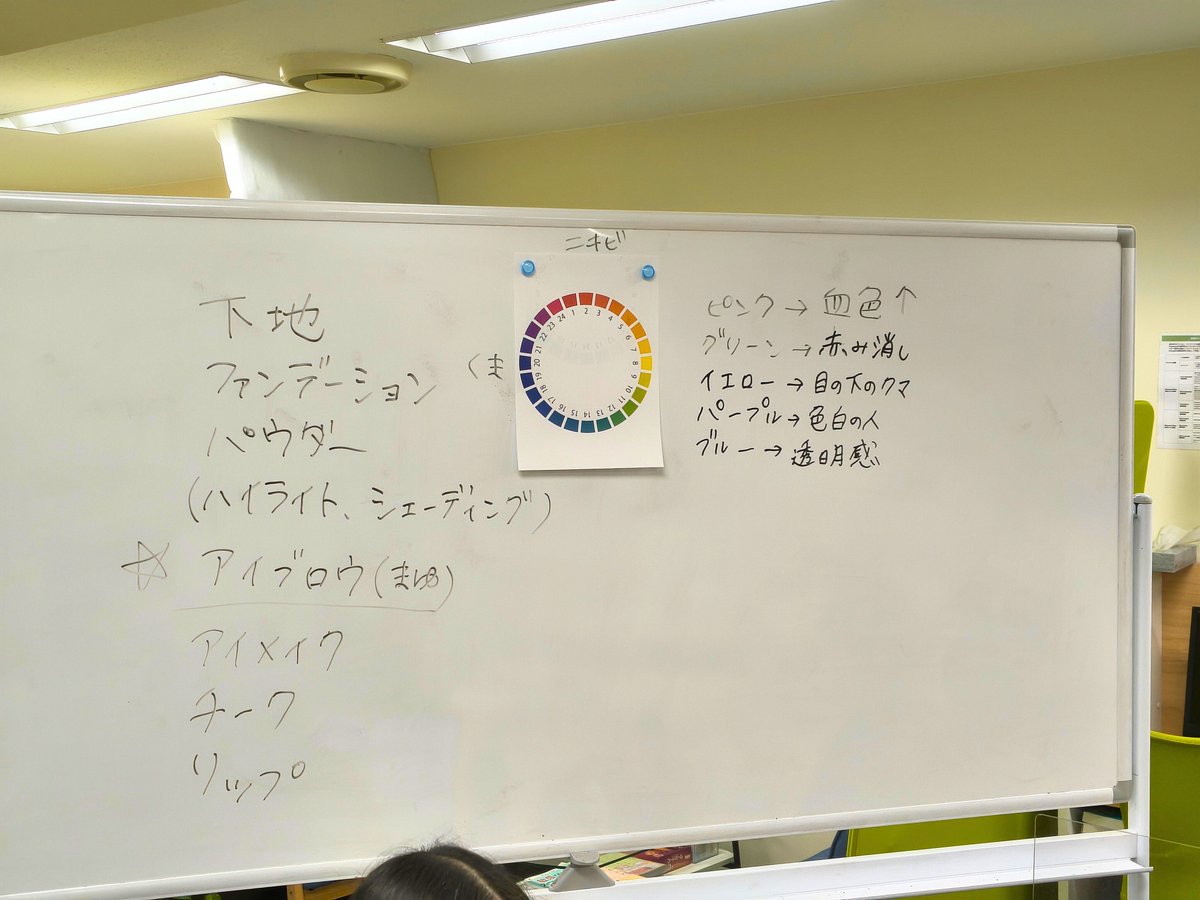 下地
ファンデーション
パウダー
(ハイライト、シェーディング)
☆ アイブロウ(まゆ)
アイメイク
チーク
リップ
ニキビ
くま
1 2 3 4 5 6 7 8 9 10 11 12 13 14 15 16 17 18 19 20 21 22 23 24
ピンク→血色↑
グリーン→赤み消し
イエロー→目の下のクマ
パープル→色白の人
ブルー→透明感